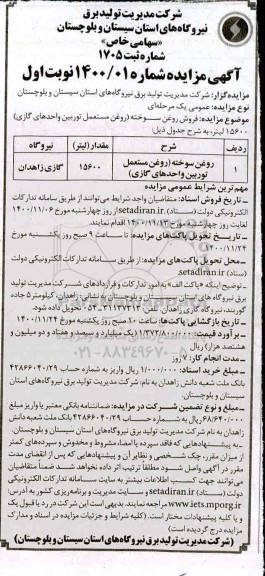 شرکت مدیریت تولید برق
نیروگاه های استان سیستان و بلوچستان
«سهامی خاص»
شماره ثبت ۱۷۰۵
آگهی مزایده شماره ۱۴۰۰/۰۱ نوبت اول
مزایده گزار: شرکت مدیریت تولید برق نیروگاه های استان سیستان و بلوچستان
نوع مزایده: عمومی یک مرحله ای
موضوع مزایده: فروش روغن سوخته (روغن مستعمل توربین واحدهای گازی)
۱۵۶۰۰ لیتر، به شرح جدول ذیل:
ردیف شرح مقدار (لیتر) نیروگاه
۱ روغن سوخته (روغن مستعمل توربین واحدهای گازی) ۱۵۶۰۰ گازی زاهدان
مهم ترین شرایط عمومی مزایده
ـ تاریخ فروش اسناد: متقاضیان واجد شرایط می توانند از طریق سامانه تدارکات
الکترونیکی دولت (ستاد) setadiran.ir از روز چهارشنبه مورخ ۱۴۰۰/۱۱/۰۶
لغایت روز چهارشنبه مورخ ۱۴۰۰/۱۱/۱۳ اقدام نمایند.
ـ تاریخ تحویل پاکت های مزایده: تا ساعت ۹ صبح روز یکشنبه مورخ
۱۴۰۰/۱۱/۲۴
ـ محل تحویل پاکت های مزایده: از طریق سامانه تدارکات الکترونیکی دولت
(ستاد) setadiran.ir
ـ توضیح اینکه «پاکت الف» به امور تدارکات و قراردادهای شرکت مدیریت تولید
برق نیروگاه های استان سیستان و بلوچستان به نشانی: زاهدان، کیلومتر ۵ جاده
گوربند، نیروگاه گازی زاهدان. تلفن: ۳۱۱۳۷۳۱۳ ـ ۰۵۴ تحویل داده شود.
ـ تاریخ بازگشایی پاکت ها: ساعت ۱۰ صبح روز یکشنبه مورخ ۱۴۰۰/۱۱/۲۴
ـ برآورد قیمت: ۱/۳۷۲/۸۰۰/۰۰۰ (یک میلیارد و سیصد و هفتاد و دو میلیون و
هشتصد هزار) ریال
ـ مدت انجام کار: ۷ روز
ـ مبلغ خرید اسناد: ۱/۰۰۰/۰۰۰ ریال واریز به شماره حساب ۴۲۸۶۶۰۴۰/۲۹
بانک ملت شعبه دانش زاهدان به نام: شرکت مدیریت تولید برق نیروگاه های استان
سیستان و بلوچستان.
ـ مبلغ و نوع تضمین شرکت در مزایده: ضمانتنامه بانکی معتبر یا واریز مبلغ
۶۸/۶۴۰/۰۰۰ ریال به شماره حساب ۴۲۸۶۶۰۴۰/۲۹ بانک ملت شعبه دانش
زاهدان به نام شرکت مدیریت تولید برق نیروگاه های استان سیستان و بلوچستان.
به پیشنهادهایی که فاقد سپرده یا امضاء، مشروط و مخدوش و سپرده های کمتر
از میزان مقرر، چک شخصی و نظایر آن و پیشنهادهایی که پس از انقضای مدت
مقرر در آگهی واصل شود مطلقاً ترتیب اثر داده نخواهد شد. ضمناً متقاضیان
می توانند جهت کسب اطلاعات بیشتر به سایت سامانه تدارکات الکترونیکی
دولت (ستاد) setadiran.ir و سایت مدیریت و برنامه ریزی کشور به آدرس:
www.iets.mporg.ir مراجعه نمایند. بدیهی است این شرکت در رد یا قبول یک
و یا کلیه پیشنهادات مختار است. (کلیه شرایط و جزئیات مزایده در اسناد و مدارک
مزایده درج گردیده است)
(شرکت مدیریت تولید برق نیروگاه های استان سیستان و بلوچستان)